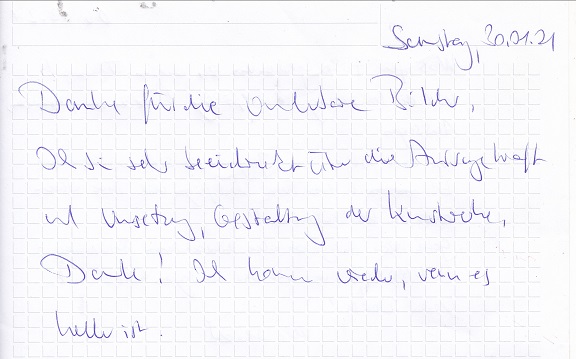 Samstag, 30.01.21
Danke für die wunderbare Bilder,
Ich bin sehr beeindruckt über die Aussagekraft
und Umsetzung, Gestaltung der Kunstwerke,
Danke! Ich komme wieder, wenn es
heller ist.